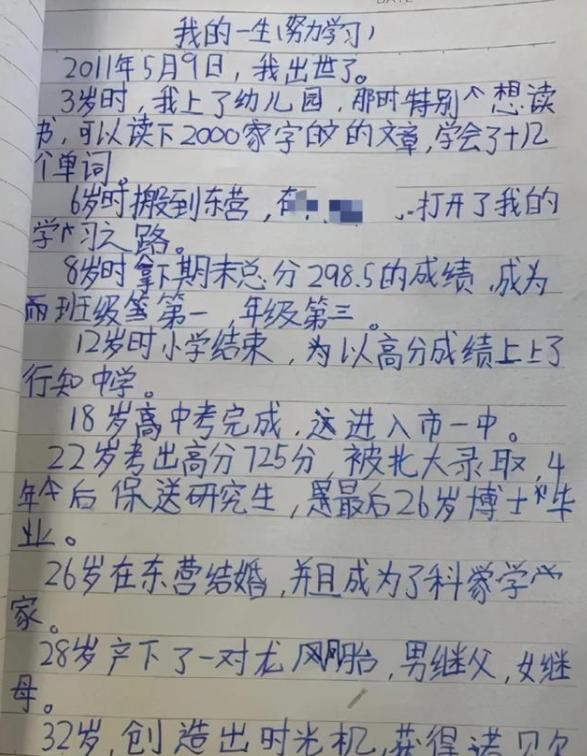 我的一生(努力学习)
2011年5月9日,我出世了。
3岁时,我上了幼儿园,那时特别个想读
书,可以读下2000家字的文章,学会了十几
个单词。
6岁时搬到东营,在 打开了我的
学习之路。
8岁时拿下期末总分298.5的成绩,成为
班级第一,年级第三。
12岁时小学结束,为以高分成绩上上了
行知中学。
18岁高中考完成,这进入市一中。
22岁考出高分725分,被北大录取,4
年个后保送研究生,最后26岁博士毕
业。
26岁在东营结婚,并且成为了科家学
家。
28岁产下了一对龙凤胎,男继父,女继
母。
32岁,创造出时光机,获得诺贝尔